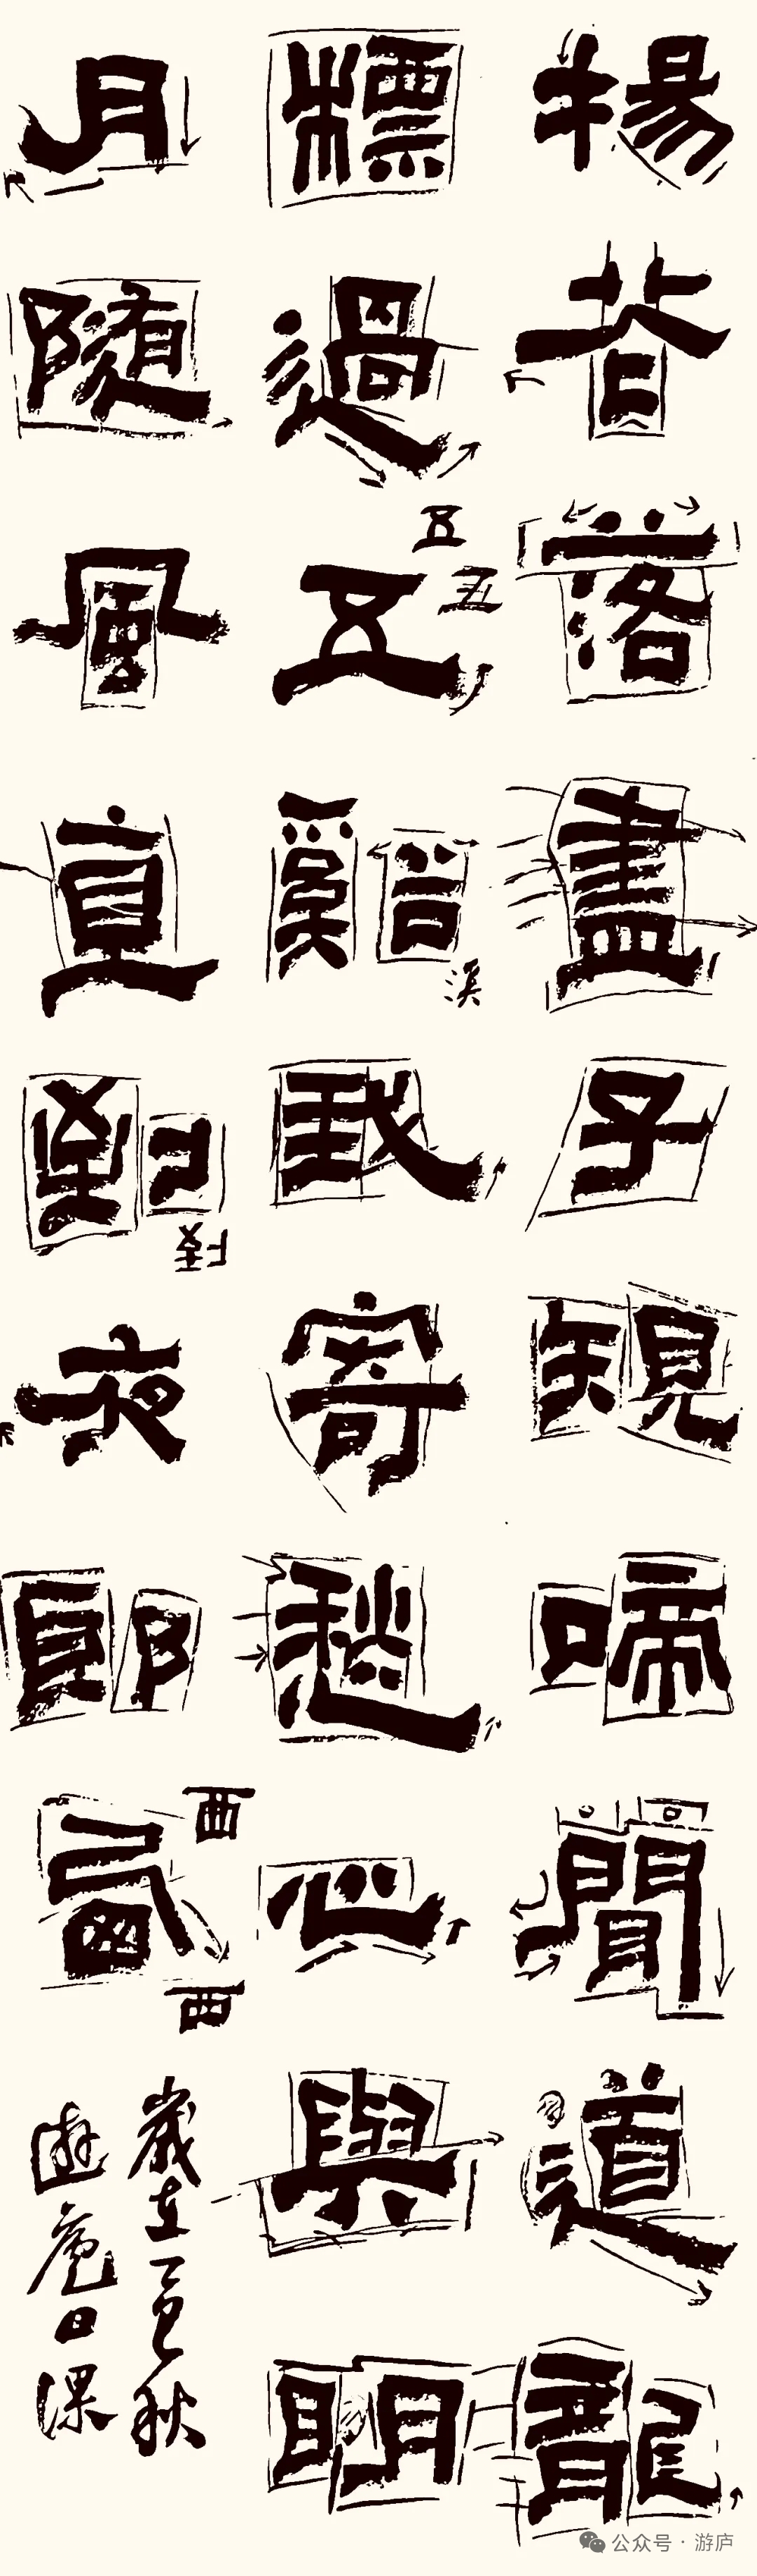 楊花落盡子規啼聞道龍
標過五谿我寄愁心與明
五
五
溪
月隨風直到夜郎西
到
西
西
歲在乙巳秋
遊廬日課
公众号 · 游庐